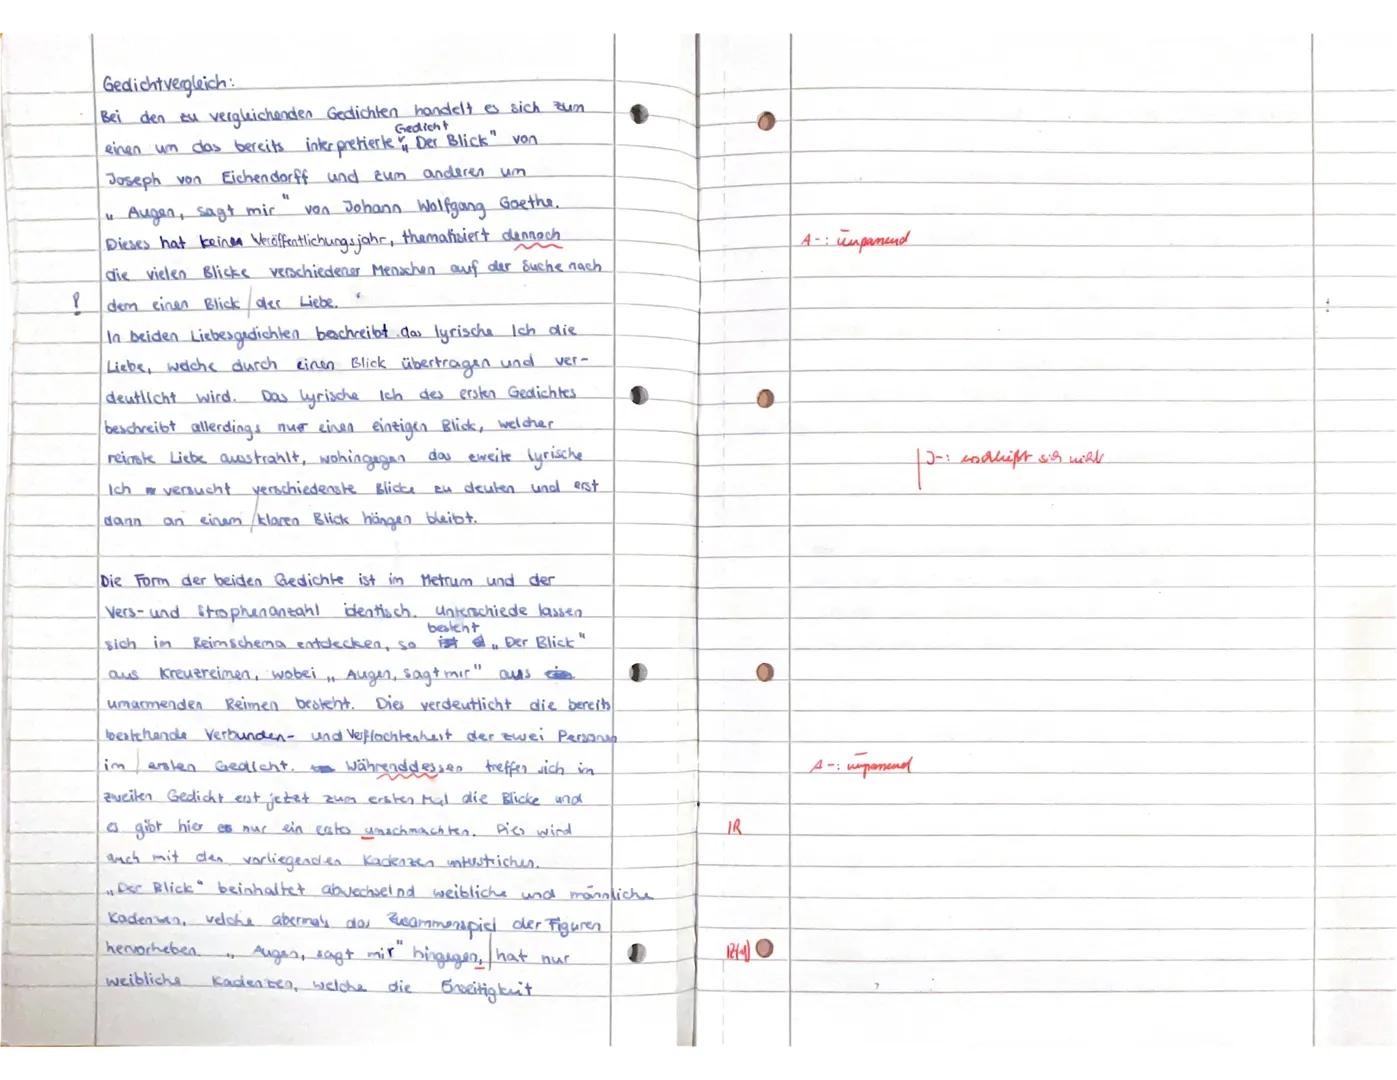 Gedichtvergleich:
Bei den zu vergleichenden Gedichten handelt es sich zum
Gedicht
einen um das bereits interpretierte „Der Blick" von
Joseph von Eichendorff und zum anderen um
„Augen, sagt mir" von Johann Wolfgang Goethe.
Dieses hat keines Veröffentlichungsjahr, thematisiert dennoch
A-: unpassend
die vielen Blicke verschiedener Menschen auf der Suche nach
dem einen Blick der Liebe.
In beiden Liebesgedichten beschreibt das lyrische Ich die
Liebe, welche durch einen Blick übertragen und ver-
deutlicht wird. Das lyrische Ich des ersten Gedichtes
beschreibt allerdings nur einen einzigen Blick, welcher
reinste Liebe ausstrahlt, wohingegen das zweite lyrische
J-: erschließt sich nicht
Ich versucht verschiedenste Blicke zu deuten und erst
dann an einem klaren Blick hängen bleibt.
Die Form der beiden Gedichte ist im Metrum und der
Vers- und Strophenanzahl identisch. Unterschiede lassen
besteht
sich im Reimschema entdecken, so „Der Blick"
aus Kreuzreimen, wobei „Augen, sagt mir" aus
umarmenden Reimen besteht. Dies verdeutlicht die bereits
bestehende Verbunden- und Verflochtenheit der zwei Personen
im ersten Gedicht. Währenddessen treffen sich im
A-: unpassend
zweiten Gedicht erst jetzt zum ersten Mal die Blicke und
es gibt hier nur ein umschmachten. Dies wird
1R
auch mit den vorliegenden Kadenzen unterstrichen.
„Der Blick" beinhaltet abwechselnd weibliche und männliche
Kadenzen, welche abermals das Zusammenspiel der Figuren
hervorheben. „Augen, sagt mir" hingegen, hat nur
weibliche Kadenzen, welche die Einseitigkeit